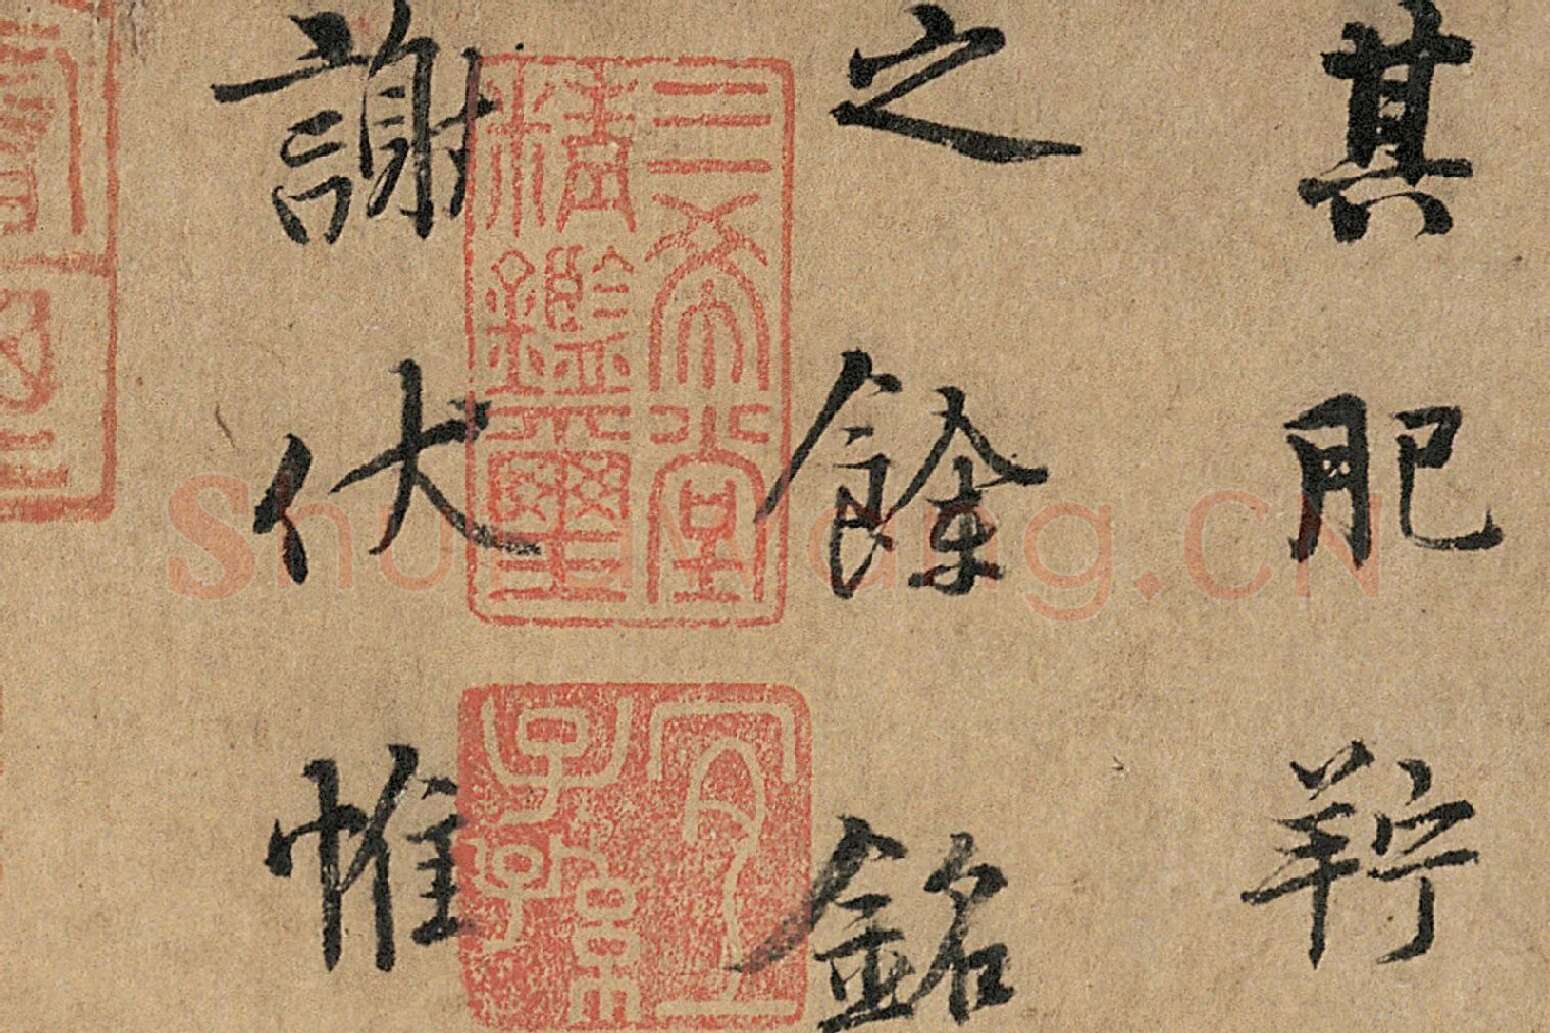 其肥羜
之餘銘
謝伏惟
三希堂
精鑑璽
宜子孫